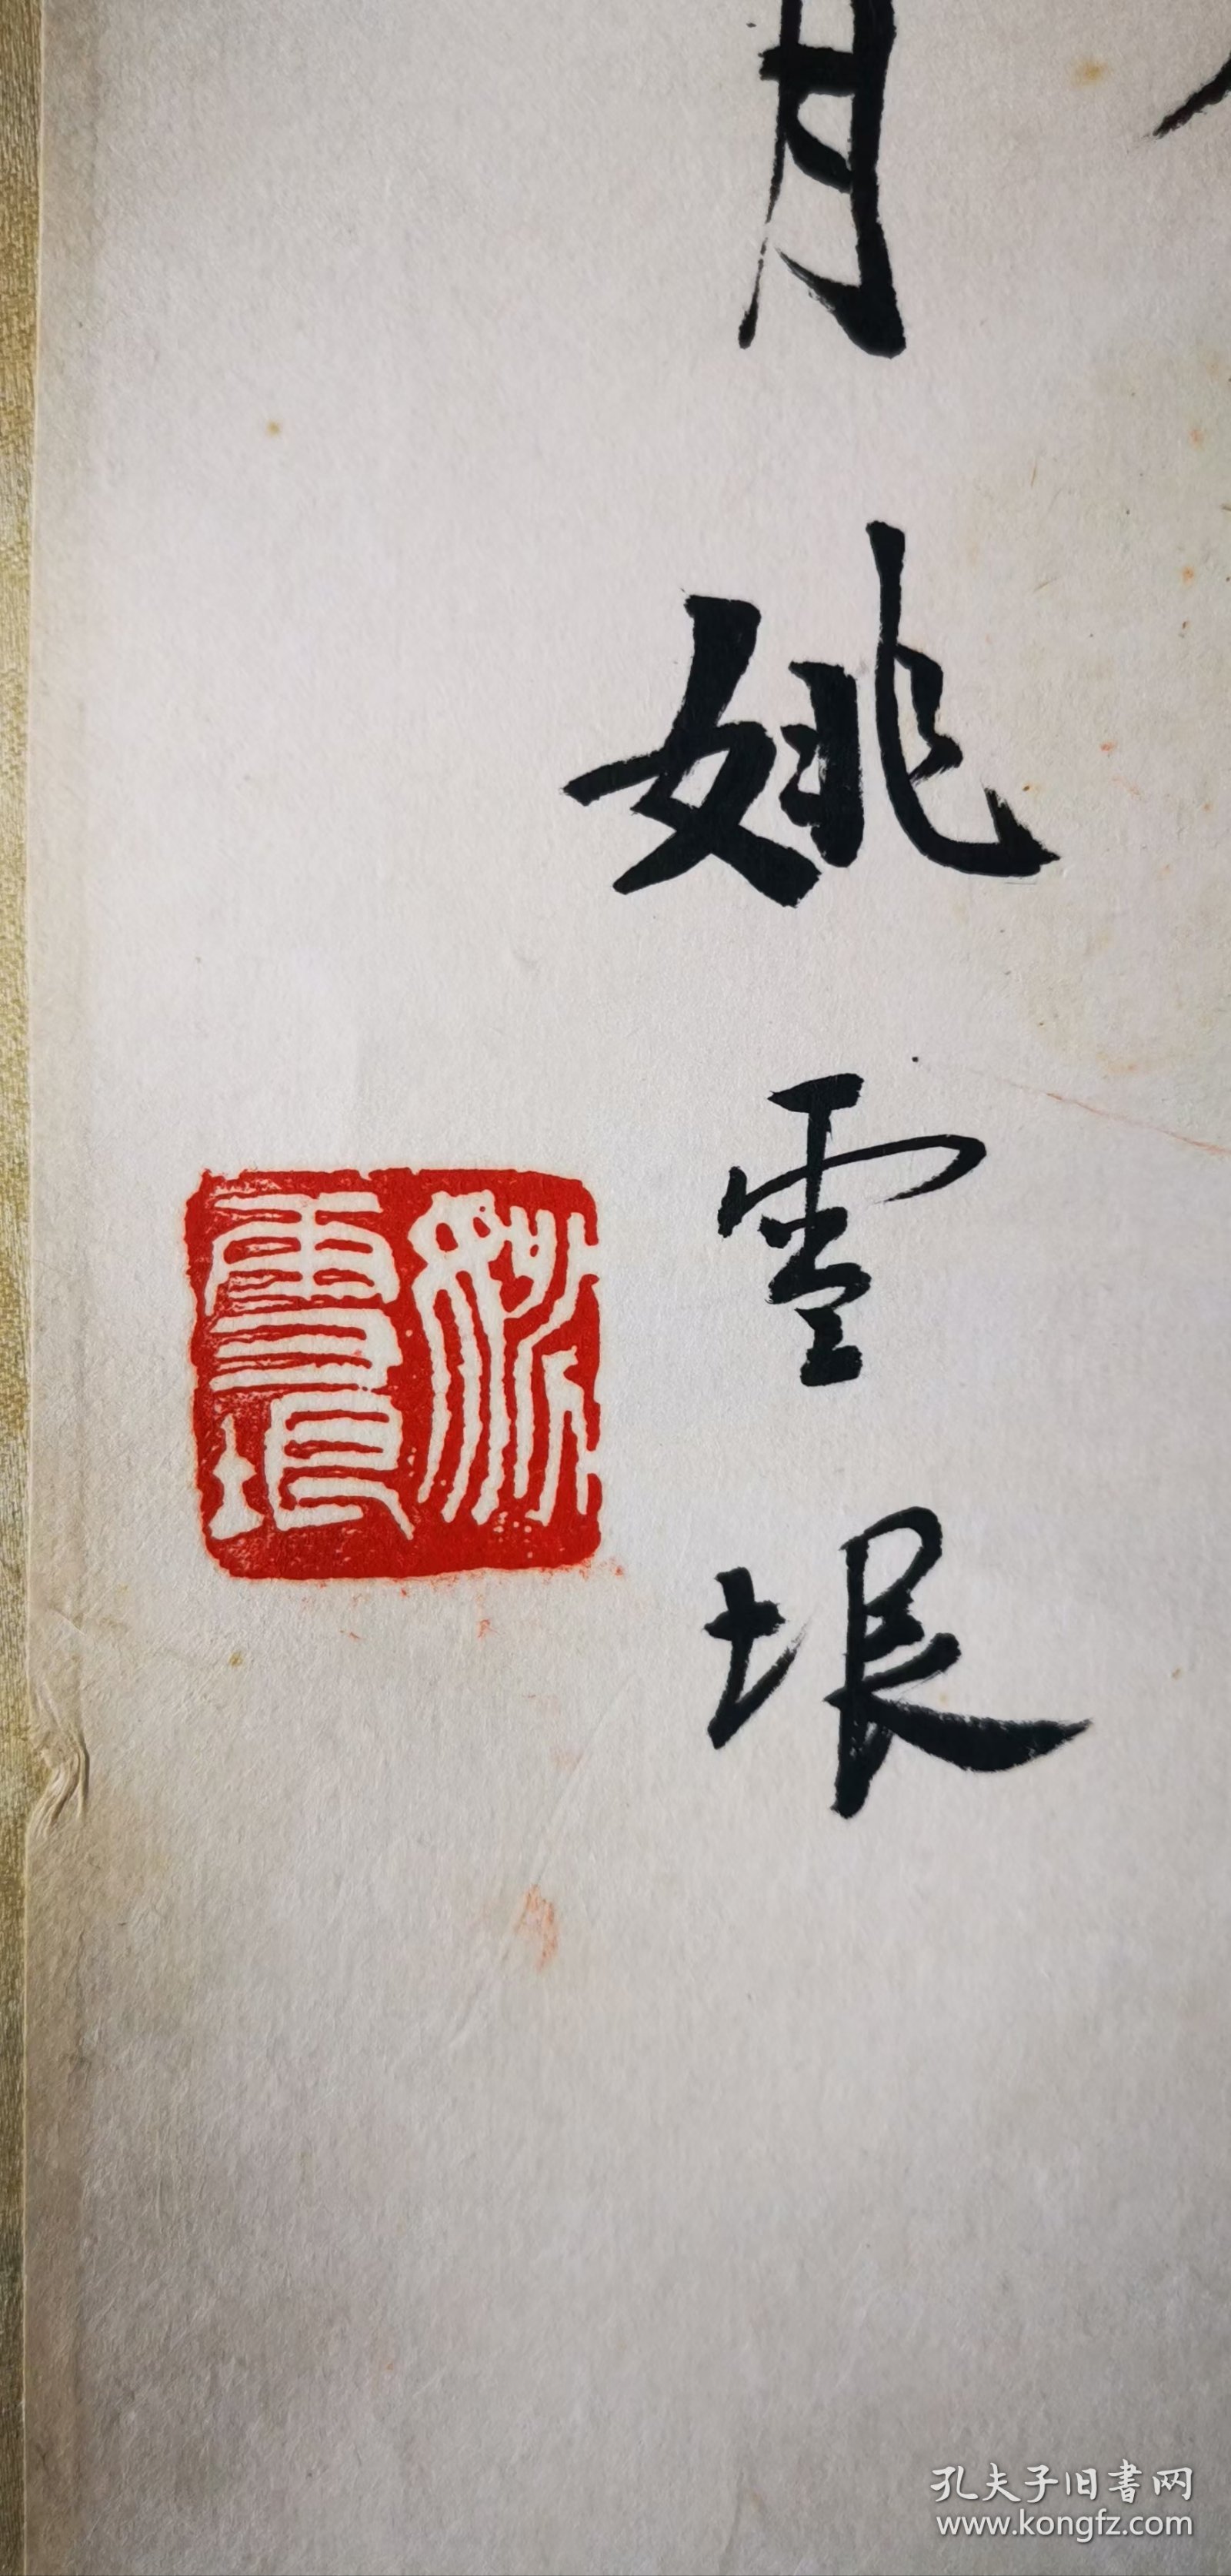 月 姚雪垠
姚雪垠
孔夫子旧書网
www.kongfz.com